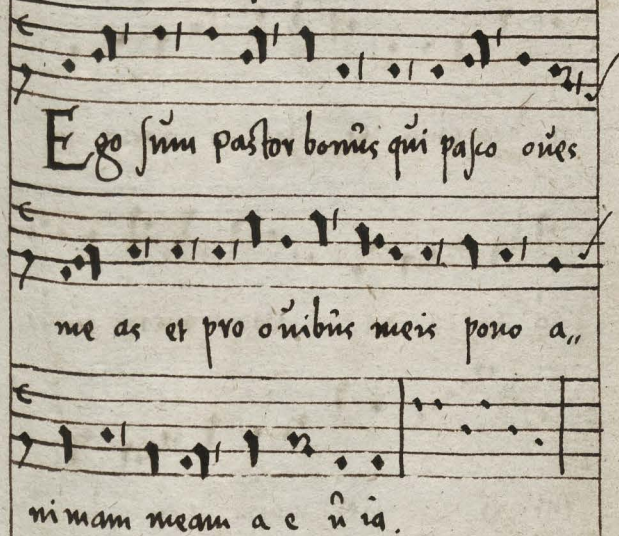 Ego sum Pastor bonus qui pasco oves
me as et pro ovibus meis pono a„
nimam meam a e u ia.